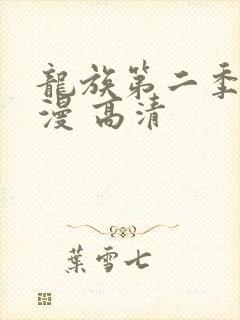 龍族第二季
漫 高清
葉雪七